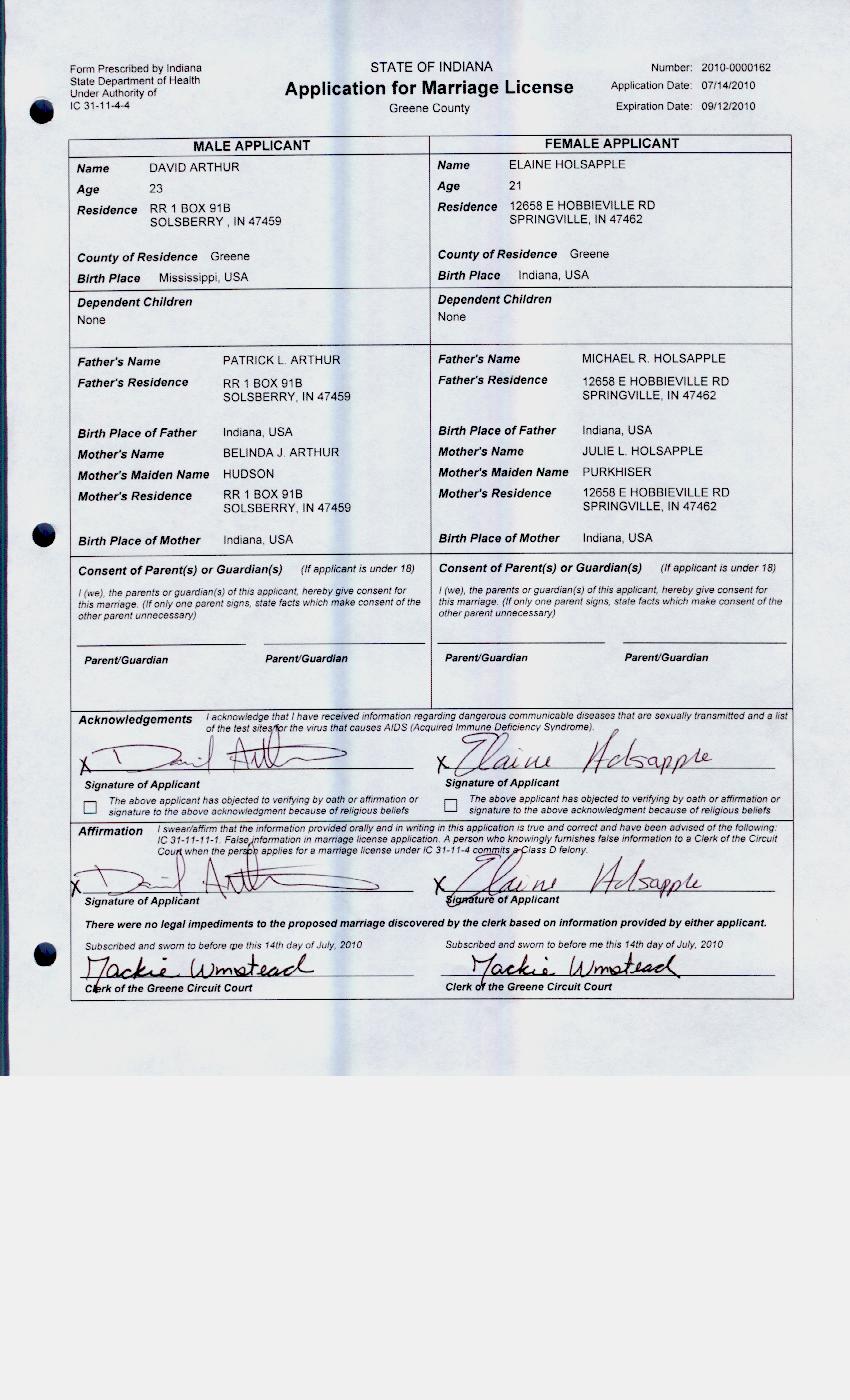 Form Prescribed by Indiana
State Department of Health
Under Authority of
IC 31-11-4-4
STATE OF INDIANA
Application for Marriage License
Greene County
Number: 2010-0000162
Application Date: 07/14/2010
Expiration Date: 09/12/2010
MALE APPLICANT
Name DAVID ARTHUR
Age 23
Residence RR 1 BOX 91B
SOLSBERRY , IN 47459
County of Residence Greene
Birth Place Mississippi, USA
Dependent Children
None
Father's Name PATRICK L. ARTHUR
Father's Residence RR 1 BOX 91B
SOLSBERRY, IN 47459
Birth Place of Father Indiana, USA
Mother's Name BELINDA J. ARTHUR
Mother's Maiden Name HUDSON
Mother's Residence RR 1 BOX 91B
SOLSBERRY, IN 47459
Birth Place of Mother Indiana, USA
Consent of Parent(s) or Guardian(s) (If applicant is under 18)
I (we), the parents or guardian(s) of this applicant, hereby give consent for
this marriage. (If only one parent signs, state facts which make consent of the
other parent unnecessary)
Parent/Guardian Parent/Guardian
FEMALE APPLICANT
Name ELAINE HOLSAPPLE
Age 21
Residence 12658 E HOBBIEVILLE RD
SPRINGVILLE, IN 47462
County of Residence Greene
Birth Place Indiana, USA
Dependent Children
None
Father's Name MICHAEL R. HOLSAPPLE
Father's Residence 12658 E HOBBIEVILLE RD
SPRINGVILLE, IN 47462
Birth Place of Father Indiana, USA
Mother's Name JULIE L. HOLSAPPLE
Mother's Maiden Name PURKHISER
Mother's Residence 12658 E HOBBIEVILLE RD
SPRINGVILLE, IN 47462
Birth Place of Mother Indiana, USA
Consent of Parent(s) or Guardian(s) (If applicant is under 18)
I (we), the parents or guardian(s) of this applicant, hereby give consent for
this marriage. (If only one parent signs, state facts which make consent of the
other parent unnecessary)
Parent/Guardian Parent/Guardian
Acknowledgements I acknowledge that I have received information regarding dangerous communicable diseases that are sexually transmitted and a list
of the test sites for the virus that causes AIDS (Acquired Immune Deficiency Syndrome).
X David Arthur X Elaine Holsapple
Signature of Applicant Signature of Applicant
The above applicant has objected to verifying by oath or affirmation or
signature to the above acknowledgment because of religious beliefs
The above applicant has objected to verifying by oath or affirmation or
signature to the above acknowledgment because of religious beliefs
Affirmation I swear/affirm that the information provided orally and in writing in this application is true and correct and have been advised of the following:
IC 31-11-11-1. False information in marriage license application. A person who knowingly furnishes false information to a Clerk of the Circuit
Court when the person applies for a marriage license under IC 31-11-4 commits a Class D felony.
X David Arthur X Elaine Holsapple
Signature of Applicant Signature of Applicant
There were no legal impediments to the proposed marriage discovered by the clerk based on information provided by either applicant.
Subscribed and sworn to before me this 14th day of July, 2010 Subscribed and sworn to before me this 14th day of July, 2010
Mackie Wmstead Mackie Wmstead
Clerk of the Greene Circuit Court Clerk of the Greene Circuit Court